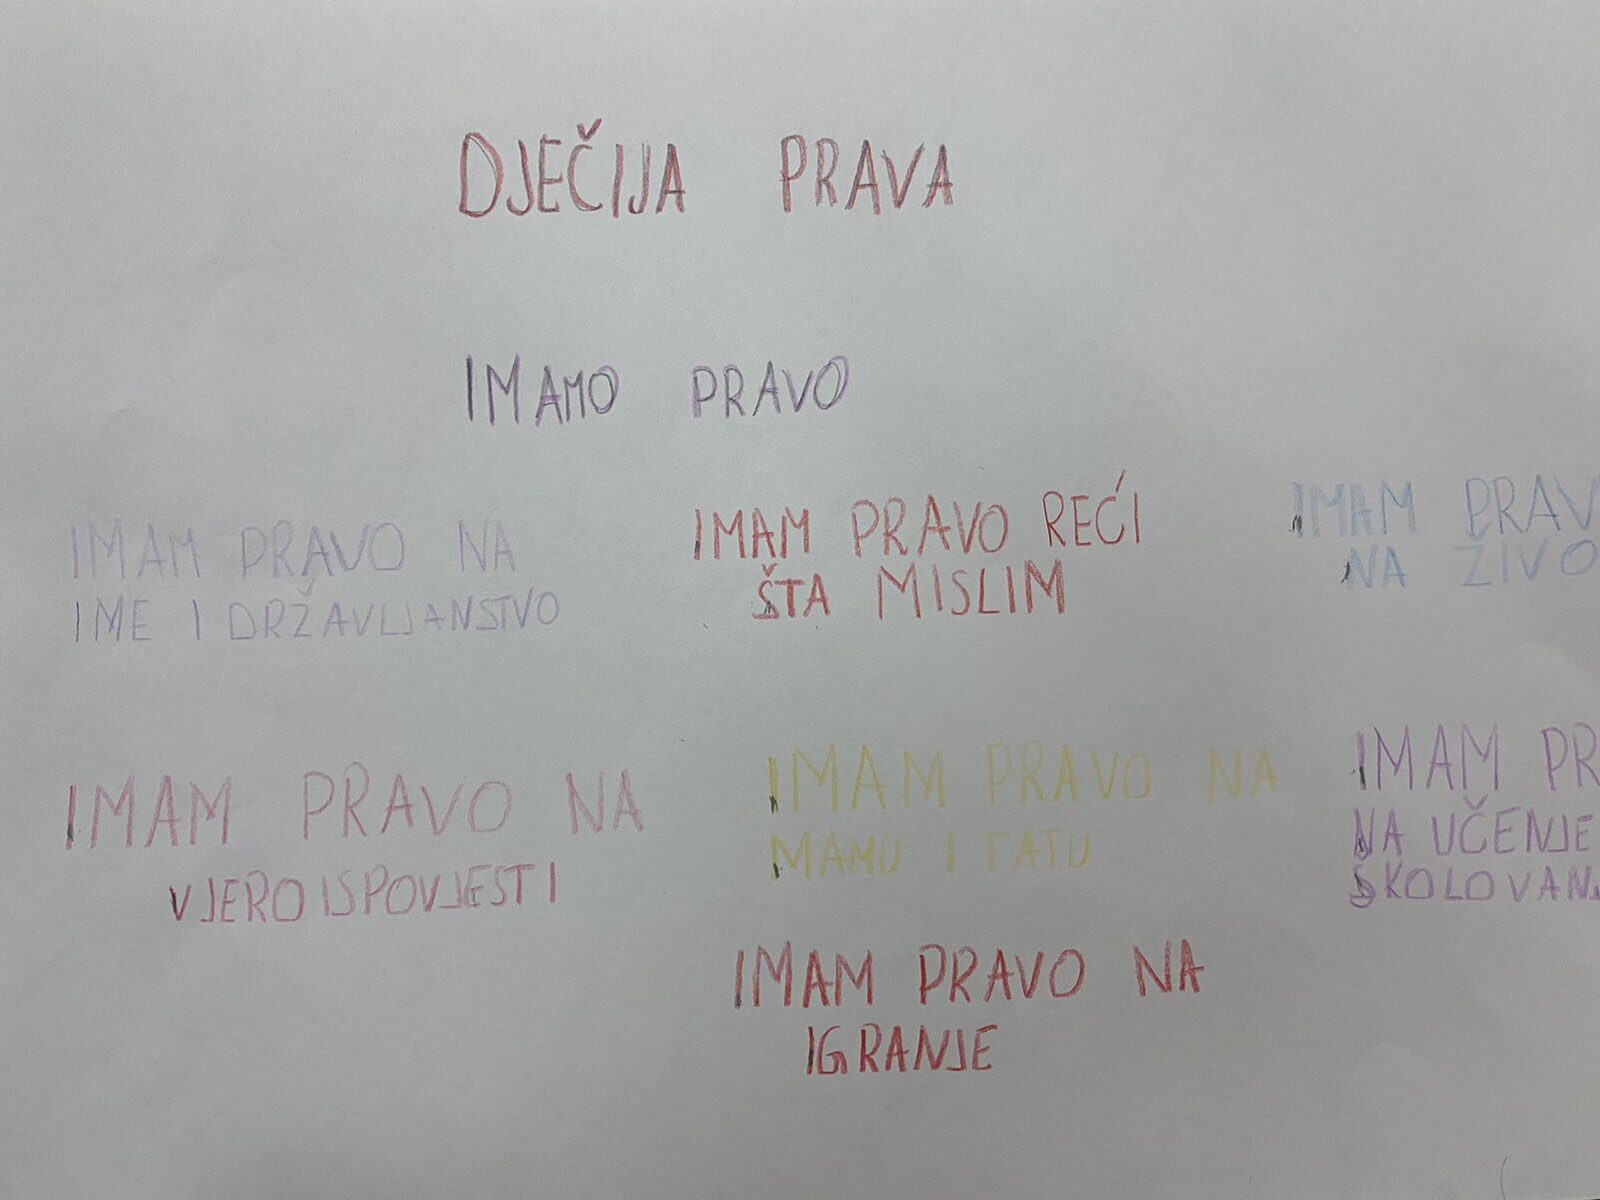 DJEČIJA PRAVA
IMAMO PRAVO
IMAM PRAVO NA
IME I DRŽAVLJANSTVO
IMAM PRAVO REĆI
ŠTA MISLIM
IMAM PRAV
NA ŽIVO
IMAM PRAVO NA
VJEROISPOVJESTI
IMAM PRAVO NA
MAMU I TATU
IMAM PR
NA UČENJE
ŠKOLOVANJ
IMAM PRAVO NA
IGRANJE